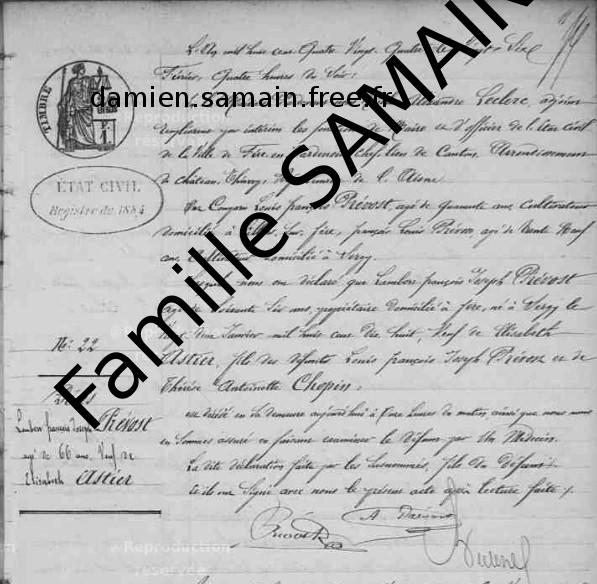 L'An mil huit cent Quatre Vingt Quatre le Vingt Six
Février, Quatre heures du Soir:
Alexandre Leclerc, adjoint
remplissant par intérim les fonctions de Maire et d'officier de l'état civil
de la Ville de Fère en Tardenois Chef lieu de Canton, Arrondissement
de château Thierry, Département de l'Aisne.
Par Louis françois Prévost, agé de quarante ans, Cultivateur
domicilié à françois Louis Prévost, agé de trente Neuf
ans, Cultivateur domicilié à Sergy.
Lesquels nous ont déclaré que Lambert françois Joseph Prévost
agé de Soixante Six ans, propriétaire domicilié à fère, né à Sergy le
Janvier mil huit cent dix huit, Veuf de Elisabeth
Astier, fils des défunts Louis françois Joseph Prévost et de
Thérèse Antoinette Chopin;
est décédé en sa demeure aujourd'hui à heures du matin, ainsi que nous nous
en sommes assuré en faisant examiner le défunt par un Médecin.
La dite déclaration faite par les Susnommés, fils du défunt;
et ils ont Signé avec nous le présent acte après lecture faite.
Prévost
TIMBRE
ÉTAT CIVIL
Registre de 1884
N° 22
Décès
Lambert françois Joseph Prévost
agé de 66 ans, Veuf de
Elisabeth Astier
damien.samain.free.fr
Famille SAMAIN
Reproduction
réservée